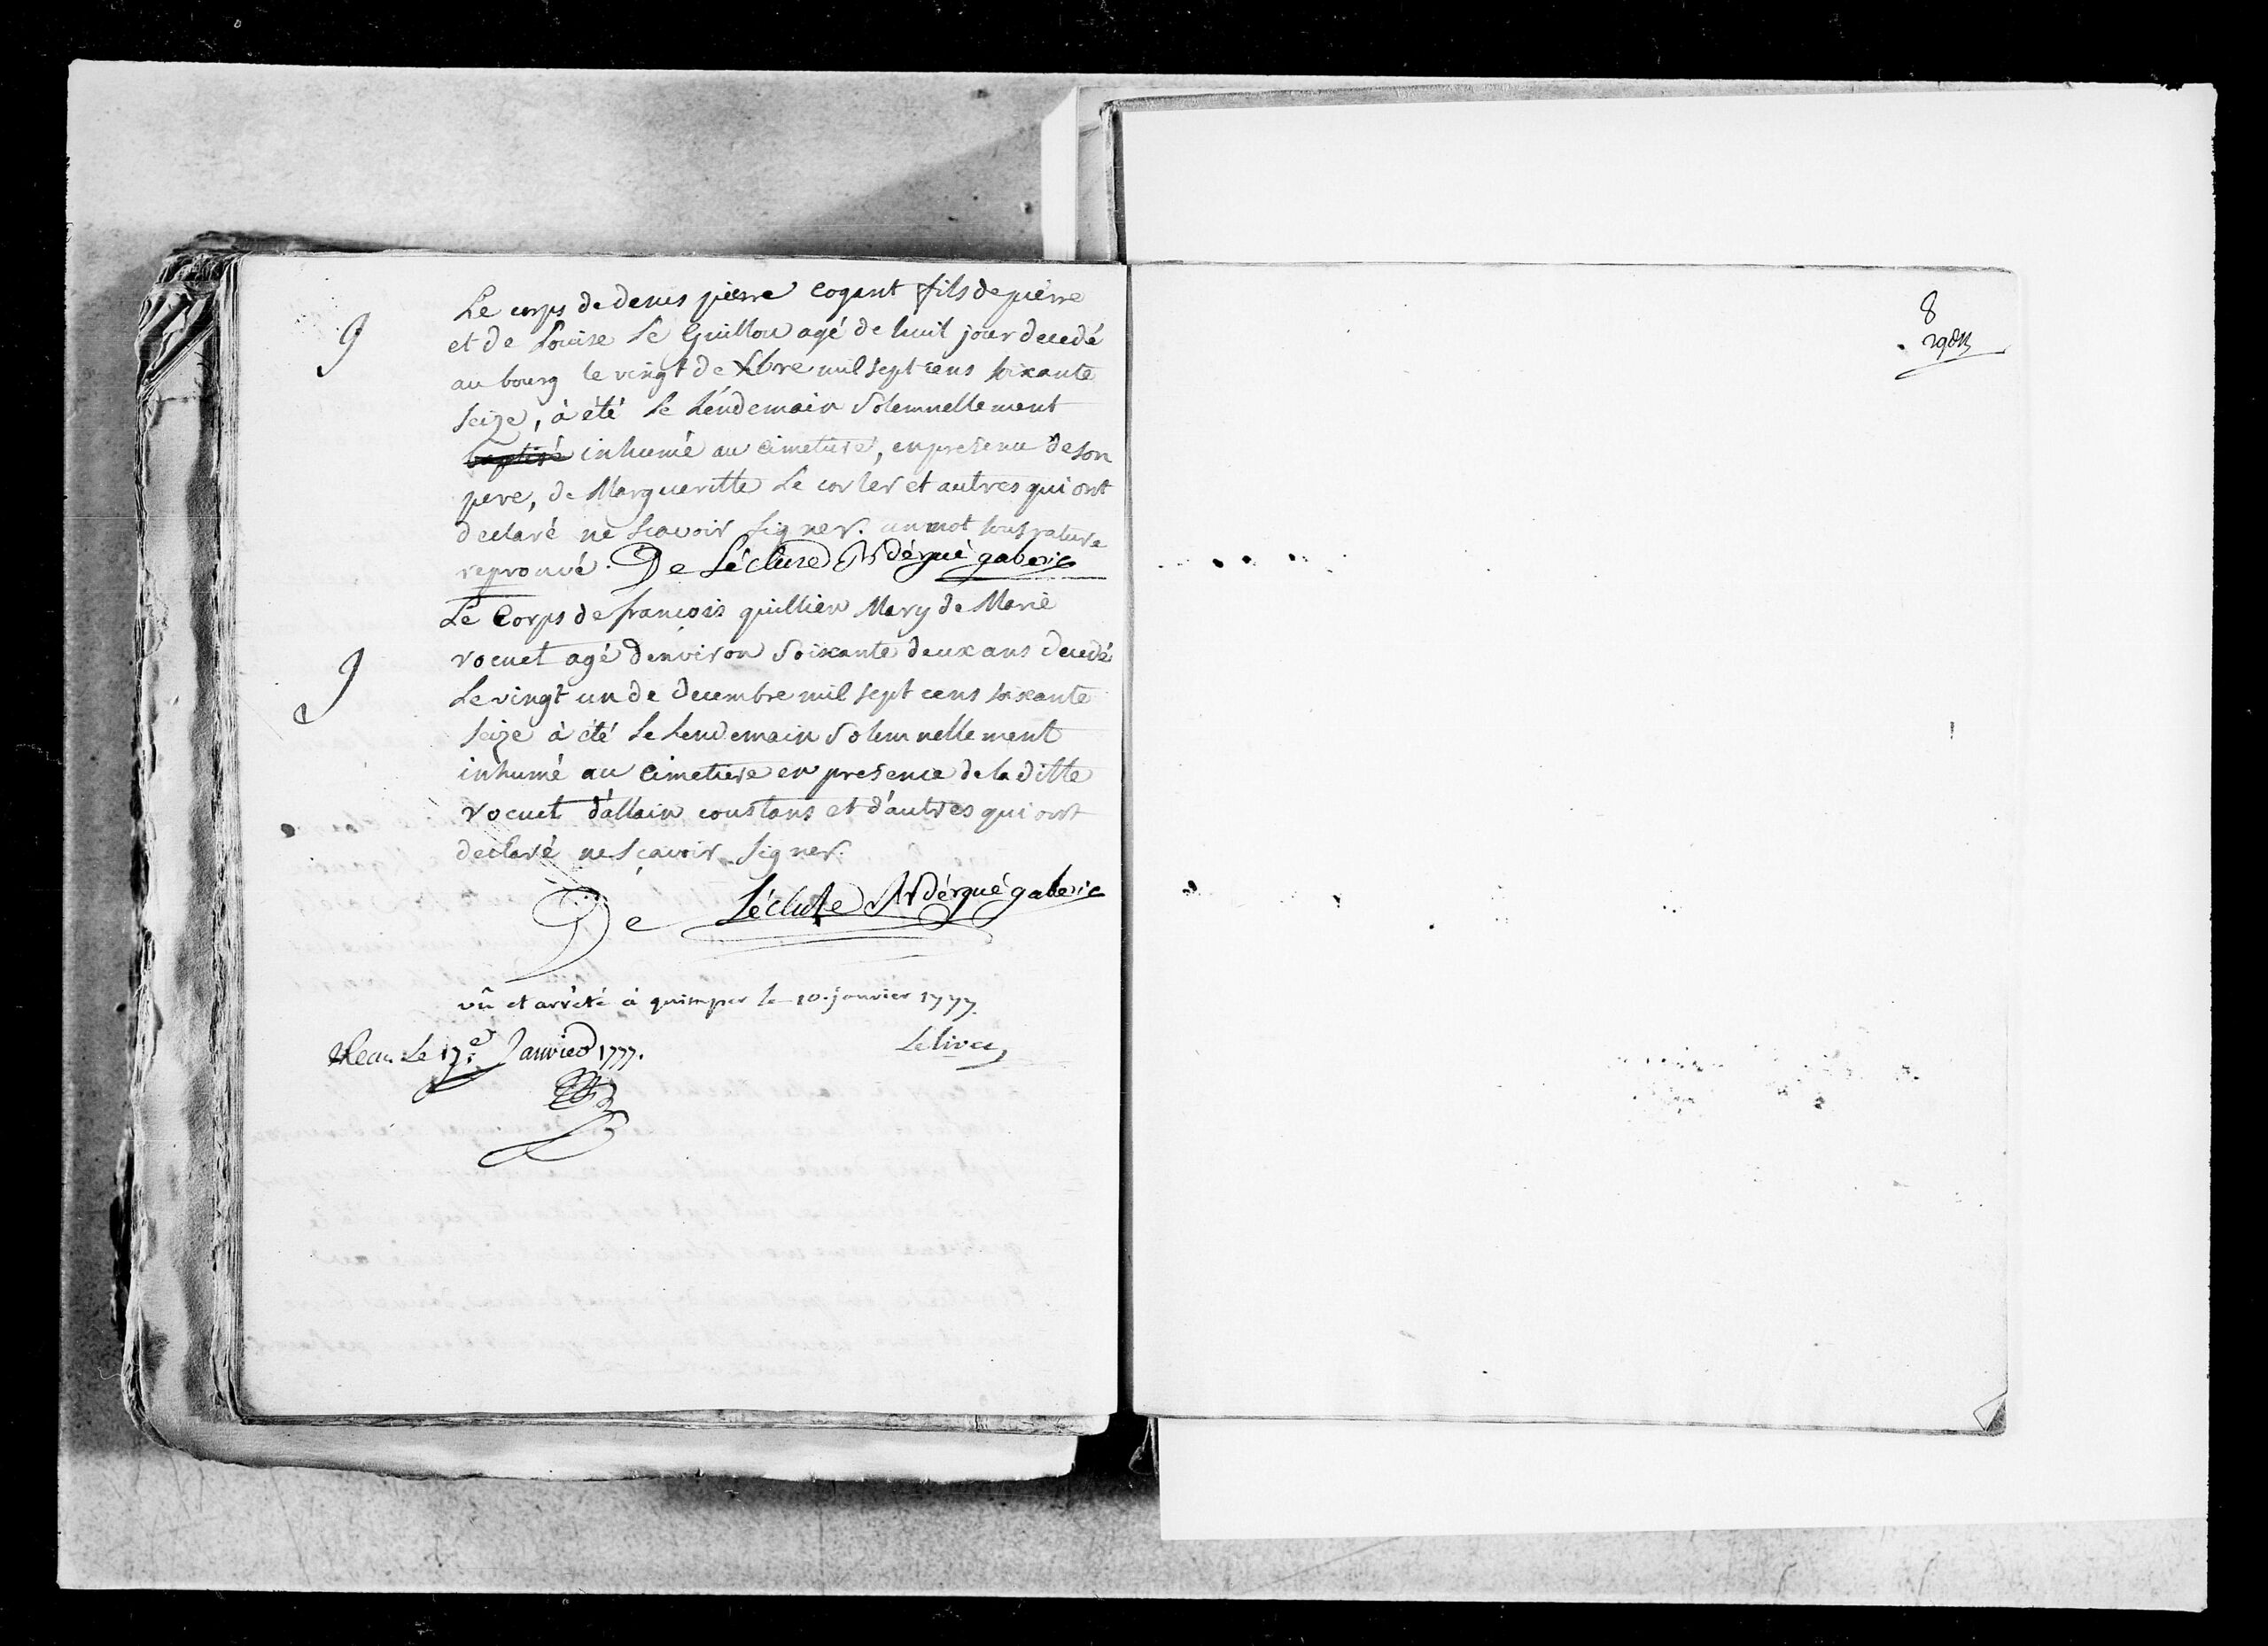 Le corps de denis pierre cogant fils de pierre
g
et de Louise Le Guillou agé de huit jour decedé
au bourg le vingt de Xbre mil sept cens soixante
seize, à été le léndemain solemnellement
baptisé inhumé au cimetiere, en presence de son
pere, de Margueritte Le corler et autres qui ont
declaré ne scavoir signer. un mot sous rature
reprouvé. De Lécluse Rr dérgué gaberic
Le Corps de francois quillien Mary de Marie
g
rocuet agé denviron soixante deux ans decedé
Le vingt un de decembre mil sept cens soixante
seize à été le lendemain solemnellement
inhumé au cimetiere en presence de la ditte
rocuet d'allain coustans et d'autres qui ont
declaré ne scavoir signer.
De Lécluse Rr dérgué gaberic
vû et arrêté à quimper le 10. janvier 1777.
Le 17e Janvier 1777.
8